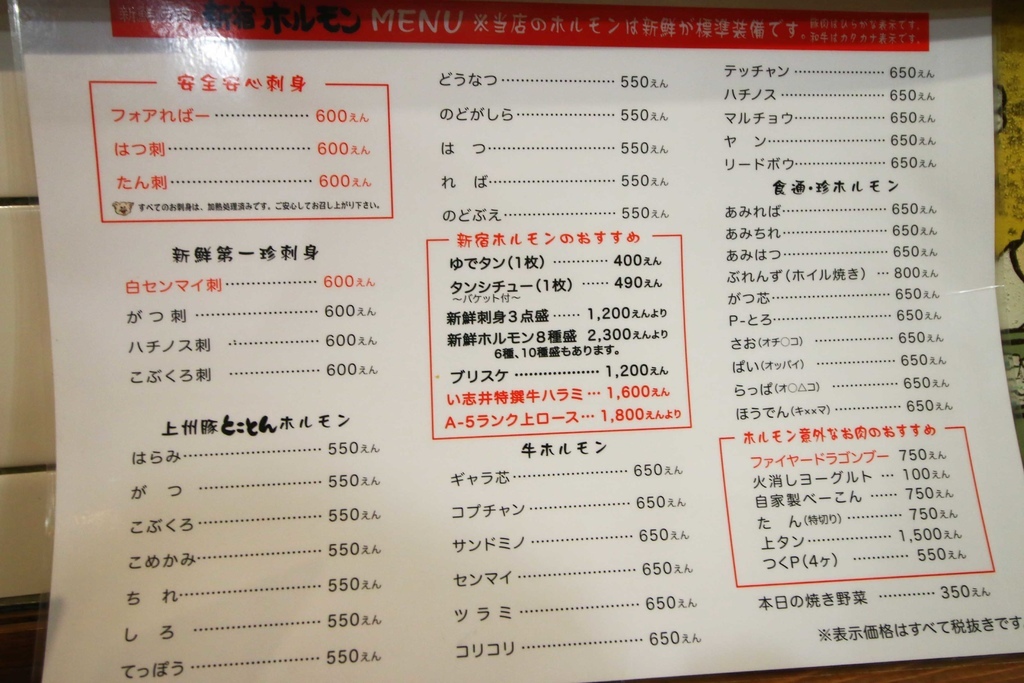 新鮮 新宿ホルモン MENU ※当店のホルモンは新鮮が標準装備です。
豚肉はひらかな表示です。
和牛はカタカナ表示です。
安全安心刺身
フォアればー 600えん
はつ刺 600えん
たん刺 600えん
すべてのお刺身は、加熱処理済みです。ご安心してお召し上がり下さい。
新鮮第一珍刺身
白センマイ刺 600えん
がつ刺 600えん
ハチノス刺 600えん
こぶくろ刺 600えん
上州豚とことんホルモン
はらみ 550えん
がつ 550えん
こぶくろ 550えん
こめかみ 550えん
ちれ 550えん
しろ 550えん
てっぽう 550えん
どうなつ 550えん
のどがしら 550えん
はつ 550えん
れば 550えん
のどぶえ 550えん
新宿ホルモンのおすすめ
ゆでタン(1枚) 400えん
タンシチュー(1枚) 490えん
〜バケット付〜
新鮮刺身3点盛 1,200えんより
新鮮ホルモン8種盛 2,300えんより
6種、10種盛もあります。
ブリスケ 1,200えん
い志井特撰牛ハラミ 1,600えん
A-5ランク上ロース 1,800えんより
牛ホルモン
ギャラ芯 650えん
コブチャン 650えん
サンドミノ 650えん
センマイ 650えん
ツラミ 650えん
コリコリ 650えん
テッチャン 650えん
ハチノス 650えん
マルチョウ 650えん
ヤン 650えん
リードボウ 650えん
食通・珍ホルモン
あみれば 650えん
あみちれ 650えん
あみはつ 650えん
ぶれんず(ホイル焼き) 800えん
がつ芯 650えん
P-とろ 650えん
さお(オチ○コ) 650えん
ぱい(オッパイ) 650えん
らっぱ(オ○△コ) 650えん
ほうでん(キ××マ) 650えん
ホルモン意外なお肉のおすすめ
ファイヤードラゴンブー 750えん
火消しヨーグルト 100えん
自家製べーこん 750えん
たん(特切り) 750えん
上タン 1,500えん
つくP(4ヶ) 550えん
本日の焼き野菜 350えん
※表示価格はすべて税抜きです